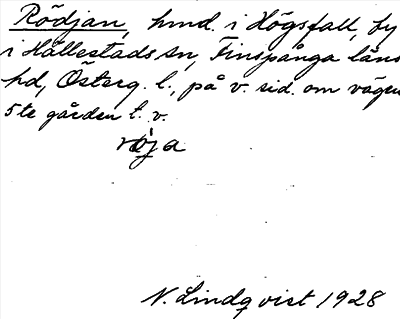 Rödjan, hmd. i Högsfall, by
i Hällestads sn, Finspånga läns
hd, Österg. l., på v. sid. om vägen
5te gården t. v.
röja
N. Lindqvist 1928